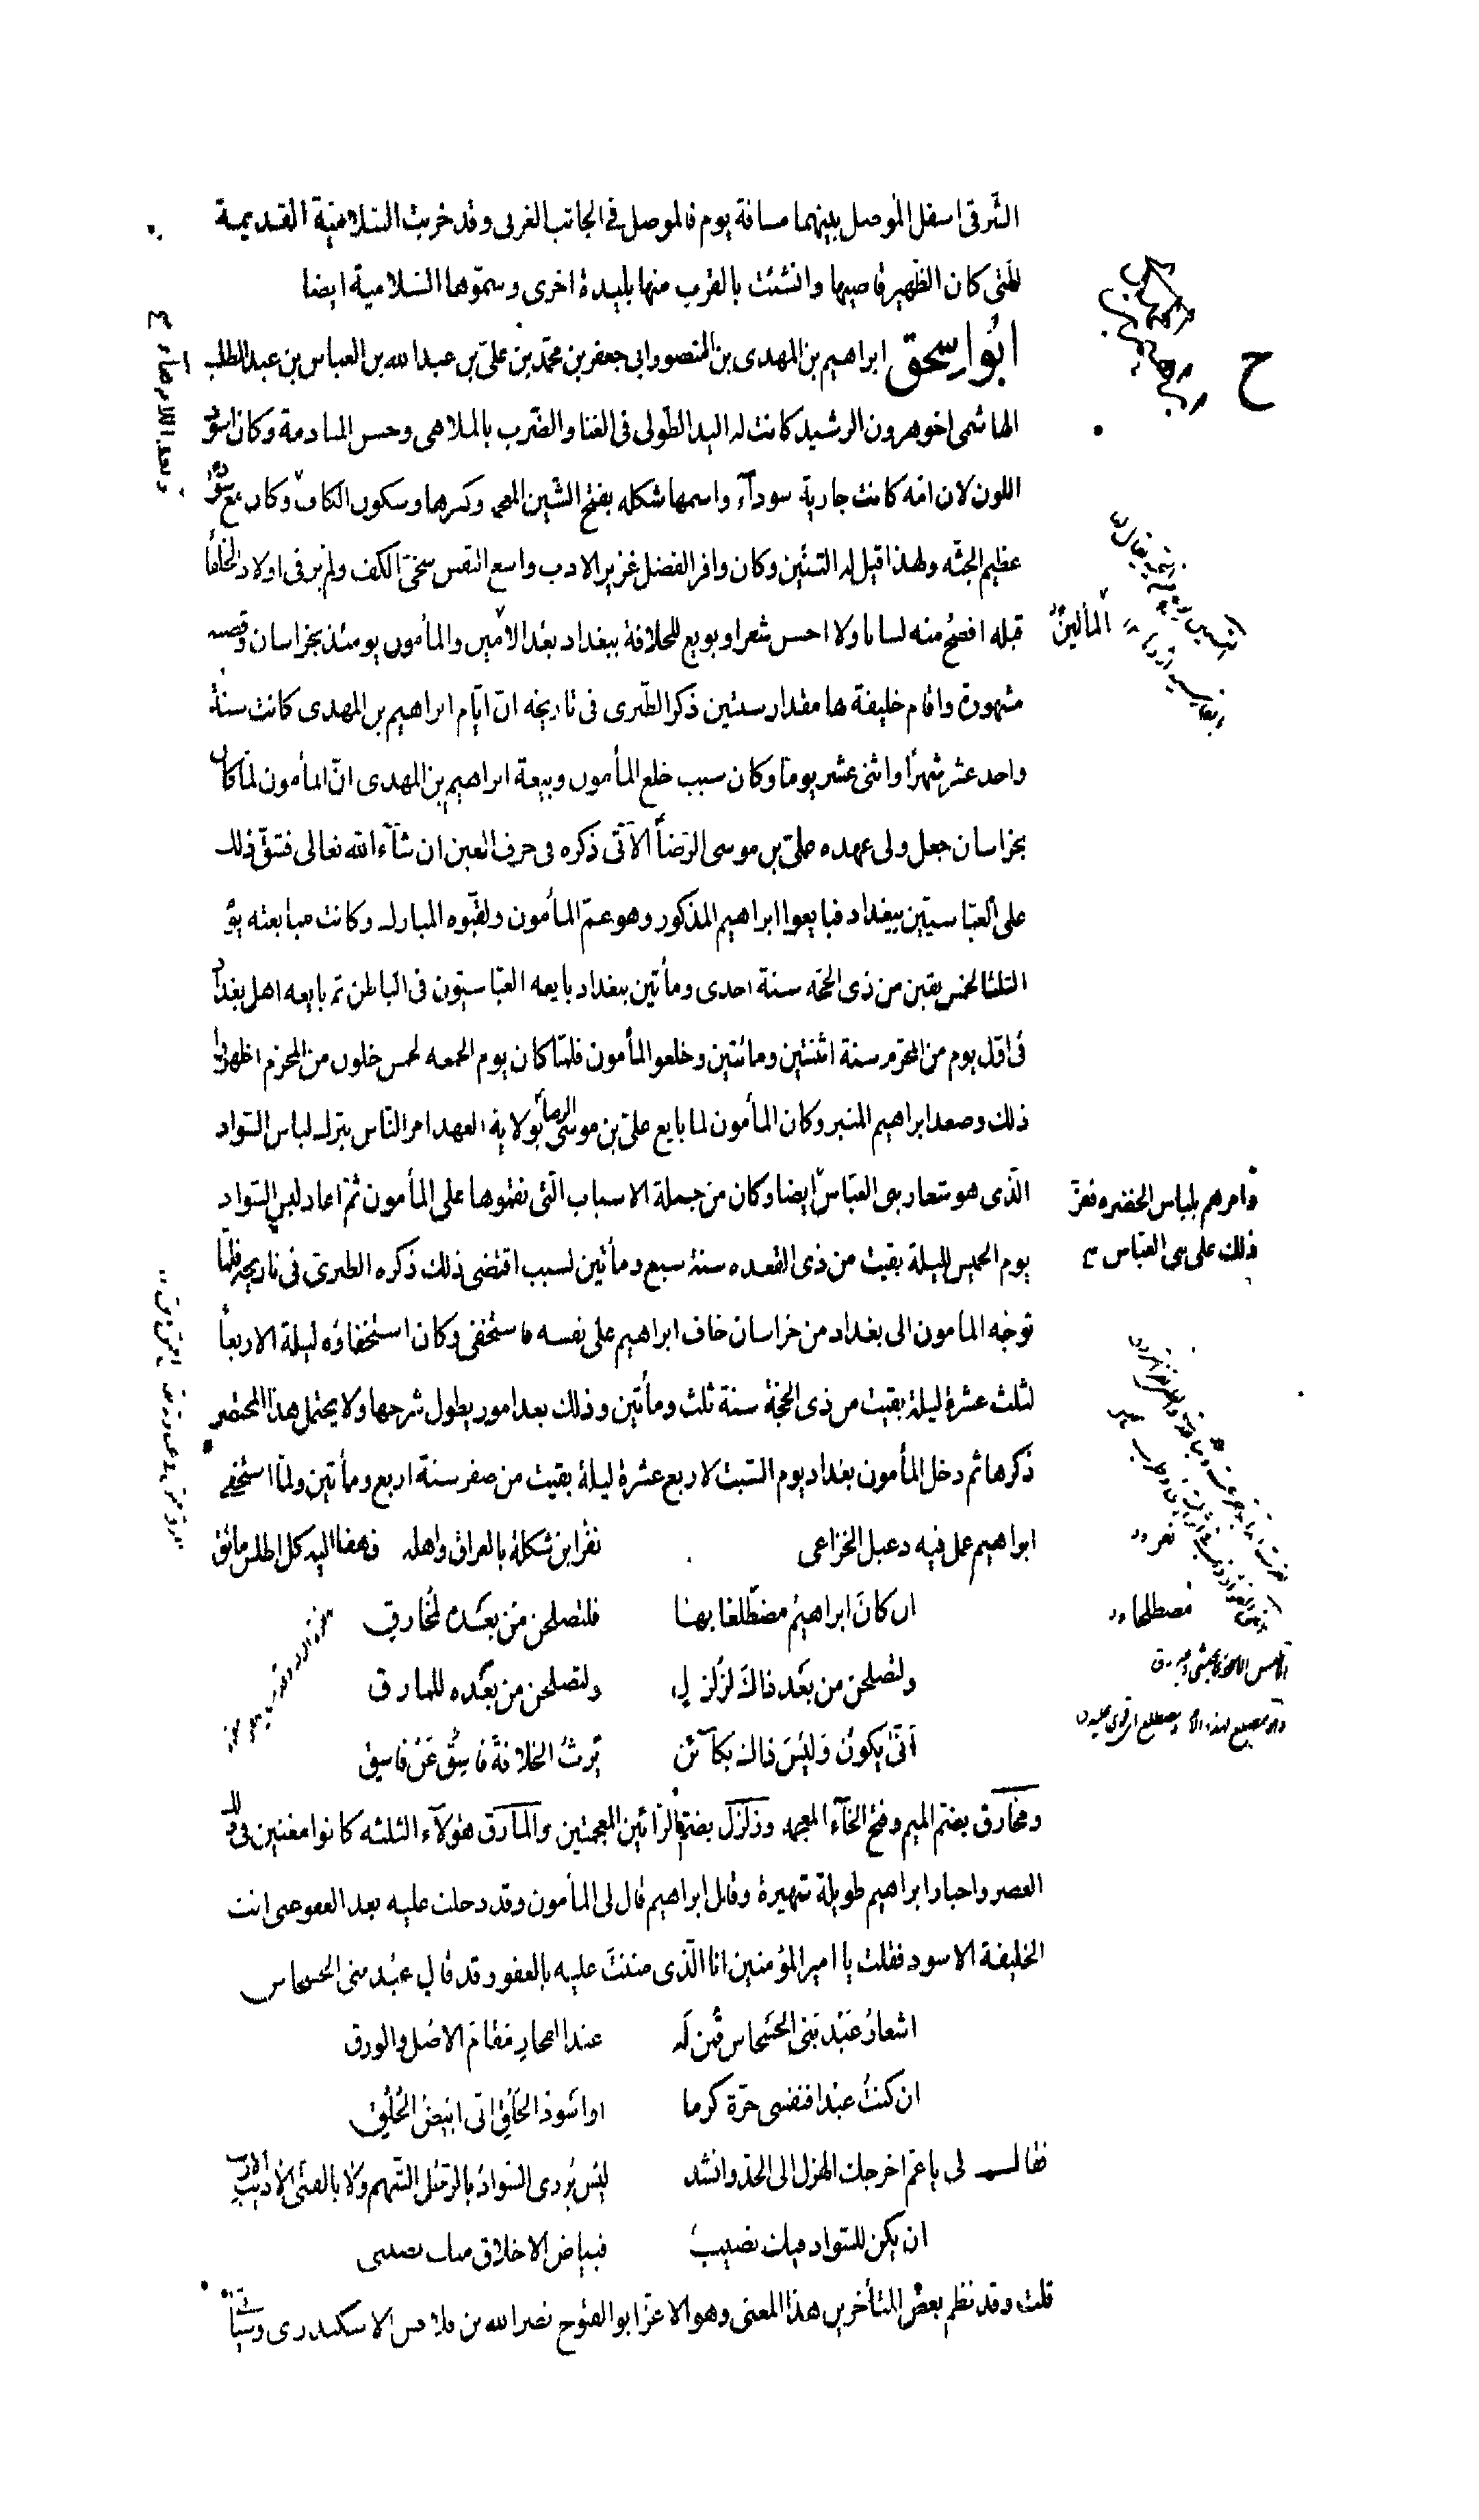 الشرقى اسفل الموصل بينهما مسافة يوم فالموصل فى الجانب الغربى وقد خربت السّلاميّة القديمة
التى كان الظهير قاضيها وانشئت بالقرب منها بليدة اخرى وسمّوها السّلامية ايضا
ابُوا سحق ابراهيم بن المهدى بن المنصور ابى جعفر بن محمّد بن علىّ بن عبدا لله بن العباس بن عبد المطلب
الهاشمى اخو هرون الرشيد كانت له اليد الطّولى فى الغنا والضّرب بالملاهى وحسن المنادمة وكان اسود
اللون لان امّه كانت جارية سودآء واسمها شكله بفتح الشّين المعجمه وكسرها وسكون الكاف وكان مع سواده
عظيم الجثّه ولهذا قيل له التنّين وكان وافر الفضل غزير الادب واسع النفس سخىّ الكف ولم ير فى اولاد الخلفآ
قبله افصح منه لسانا ولا احسن شعرا وبويع للخلافة ببغداد بعد الامين والمأمون يومئذ بخراسان وقصته
مشهورة واقام خليفة بها مقدار سنتين ذكر الطّبرى فى تاريخه انّ ايّام ابراهيم بن المهدى كانت سنة
واحد عشر شهرًا واثنى عشر يومًا وكان سبب خلع المأمون وبيعة ابراهيم بن المهدى انّ المأمون لمّا كان
بخراسان جعل ولى عهده علىّ بن موسى الرّضآ الآتى ذكره فى حرف العين ان شآء الله تعالى فشقّ ذلك
على العبّاسيّين ببغداد فبايعوا ابراهيم المذكور وهو عمّ المأمون ولقّبوه المبارك وكانت مبايعته يوم
الثلثا لخمس بقين من ذى الحجّه سنة احدى ومأتين ببغداد بايعه العبّاسيّون فى الباطن ثم بايعه اهل بغداد
فى اوّل يوم من المحرّم سنة اثنتين ومائتين وخلعو المأمون فلمّا كان يوم الجمعه لخمس خلون من المحرّم اظهروا
ذلك وصعد ابراهيم المنبر وكان المأمون لما بايع علىّ بن موسى الرضآ بولاية العهد امر النّاس بترك لباس السّواد
الّذى هو شعار بنى العبّاس ايضا وكان من جملة الاسباب الّتى نقموها على المأمون ثمّ اعاد لبس السّواد
يوم الخميس لليلة بقيت من ذى القعده سنة سبع ومأتين لسبب اقتضى ذلك ذكره الطبرىّ فى تاريخه فلمّا
توجّه المأمون الى بغداد من خراسان خاف ابراهيم على نفسه فاستخفى وكان استخفاؤه ليلة الاربعآ
لثلث عشرة ليلة بقيت من ذى الحجّة سنة ثلث ومأتين وذلك بعد امور يطول شرحها ولا يحتمل هذا المختصر
ذكرها ثم دخل المأمون بغداد يوم السّبت لاربع عشرة ليلة بقيت من صفر سنة اربع ومأتين ولمّا استخفى
ابراهيم عمل فيه دعبل الخزاعى نفر ابن شكلة بالعراق واهله فهفا اليه كل اطلس مائق
ان كانَ ابراهيمُ مضطّلعا بهنا فلتصلحن من بعده لمخارق
ولتصلحن من بعد ذاك لزلزل ولتصلحن من بعده للمارق
أنّى يكونُ وَليْسَ ذاك بكآئن يرثُ الخلافة فاسِقٌ عَنْ فاسِق
ومخارق بضمّ الميم وفتح الخآء المعجمه وزلزل بضم الزّائين المعجمتين والمارق هؤلآء الثلثه كانوا مغنين فى ذلك
العصر واخبار ابراهيم طويلة شهيرة وقال ابراهيم قال لى المأمون وقد دخلت عليه بعد العفو عنى انت
الخليفة الاسود فقلت يا امير المؤمنين انا الّذى مننتَ عليه بالعفو وقد قال عبْد بنى الحسحاس
اشعارُ عَبْد بَنى الحسْحاس قمن لَه عند الفخار مقامَ الاصْل والورق
ان كنتُ عبْدا فنفسى حرّة كرما او اسْود الخَلْق انّى ابيضُ الخُلُق
فقال لى يا عم اخرجك الهزل الى الجدّ وانشد ليْس يزرى السّوادُ بالرّجُل الشّهم ولا بالفتى الاديب الارب
ان يكن للسّواد فيك نصيبٌ فبياض الاخلاق منك نصيبى
قلت وقد نظم بعض المتأخرين هذا المعنى وهو الاعزّ ابو الفتوح نصر الله بن قلاقس الاسكندرى وسيأتى
ح
المأليين
وامرهم بلباس الخضره فعزّ
ذلك على بنى العبّاس
نعر
مضطلعا